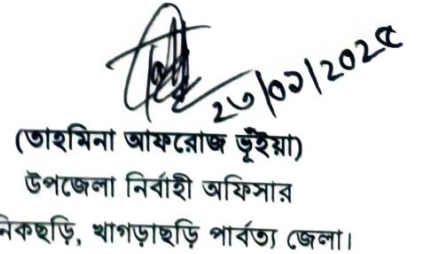 ২৩/০১/২০২৫
(তাহমিনা আফরোজ ভূঁইয়া)
উপজেলা নির্বাহী অফিসার
নিকছড়ি, খাগড়াছড়ি পার্বত্য জেলা।